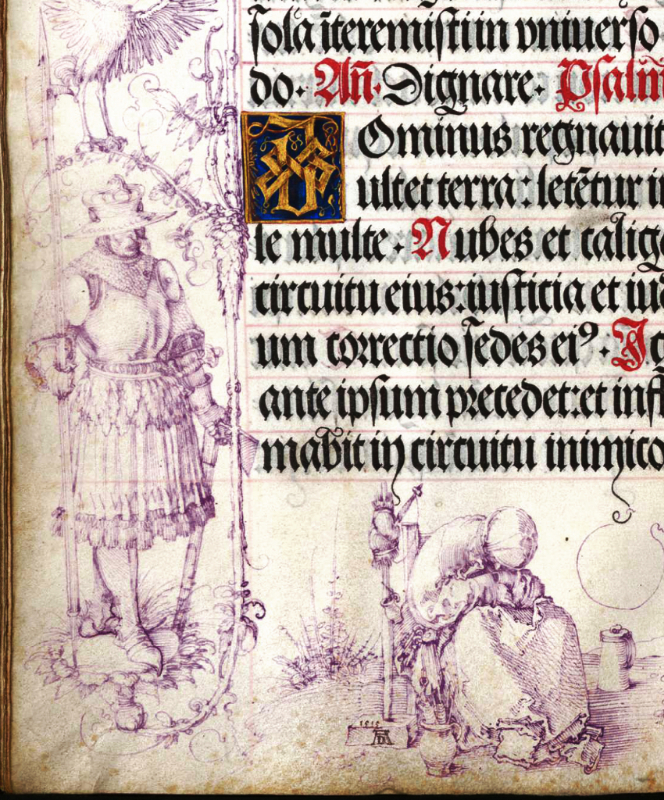 sola īteremisti in vniuerso
do. Añ. Dignare. Psalm
Dominus regnauit
ultet terra: letētur i
le multe. Nubes et calig
circuitu eius: iusticia et iu
um correctio sedes eiꝰ. I
ante ipsum precedet: et inf
mabit in circuitu inimico
AD